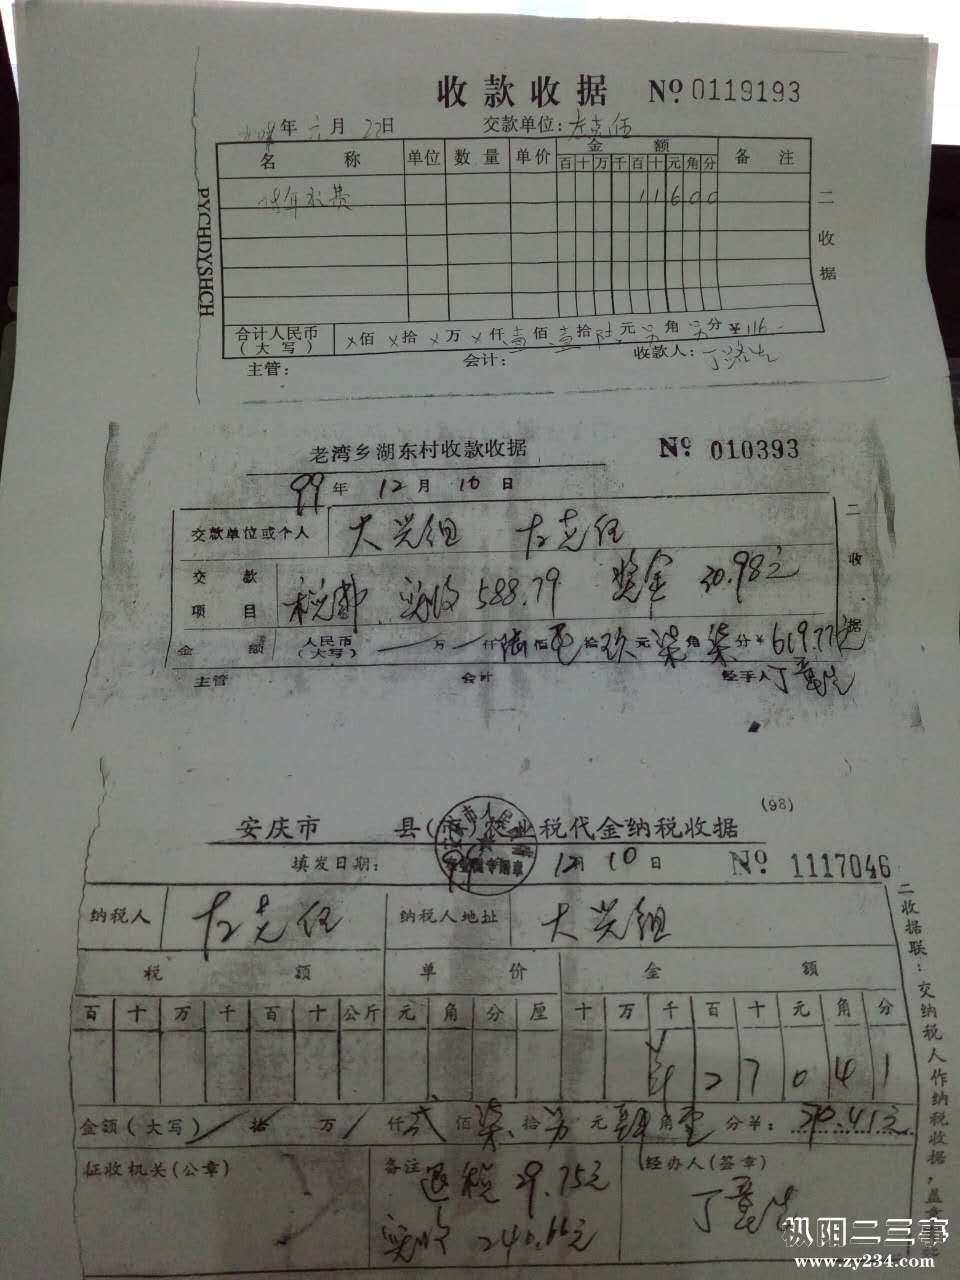 收款收据 № 0119193
年 六月 22日 交款单位：左克伍
名 称 单位 数量 单价 金 额 备 注
百 十 万 千 百 十 元 角 分
98年 费 1 1 6 0 0
二收据
PYCHDYSHCH
合计人民币（大写） ×佰×拾×万×仟壹佰壹拾陆元 角 分 ￥116
主管： 会计： 收款人：
老湾乡湖东村收款收据 № 010393
99年 12月 10日
交款单位或个人 大兴组 左克伍
交款项目 税 实收588.79 奖金 30.98元
金额 人民币（大写） 一万一仟陆佰 拾玖元柒角柒分￥619.77元
主管 会计 经手人 丁
二收据
(98)
安庆市 县（市）农业税代金纳税收据
填发日期： 12月 10日 № 1117046
纳税人 左克伍 纳税人地址 大兴组
税 额 单 价 金 额
百 十 万 千 百 十 公斤 元 角 分 厘 十 万 千 百 十 元 角 分
¥ 2 7 0 4 1
金额（大写） 拾 万 仟 贰佰柒拾另元肆角壹分￥：270.41元
征收机关（公章） 备注 退税29.75元 经办人（签章）
实收240.66元 丁
二收据联：交纳税人作纳税收据，盖章
枞阳二三事
www.zy234.com